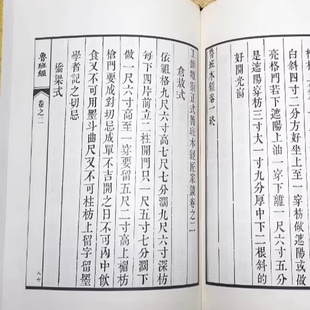 白斜四寸二分方好坐上至一穿枋做遮陽或做
亮格門若下遮陽上油一穿下離一尺六寸五分
是遮陽穿枋三寸大一寸九分厚中下二根斜的
好開光窗
魯班木經卷一終
正式魯班木經匠家鏡卷之二
倉敖式
依祖格九尺六寸高七尺七寸闊九尺六寸深枋
每下四片前立二柱開門只一尺五寸七分闊下
做一尺六寸高至一穿要留五尺二寸高上楣枋
槍門要成對切忌成單不吉開之日不可內中飲
食又不可用墨斗曲尺又不可柱枋上留字留墨
學者記之切忌
橋梁式
魯班經
卷之二